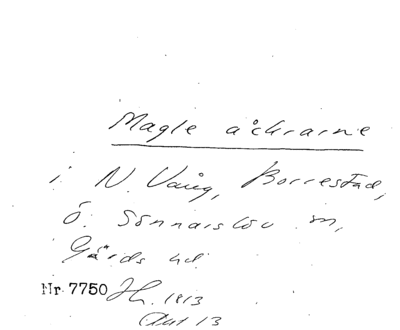 Magle åkrarne
i N. Vång, Borrestad,
Ö. Sönnarslöv sn,
Gärds hd.
Nr 7750 Jh. 1813
Akt 13